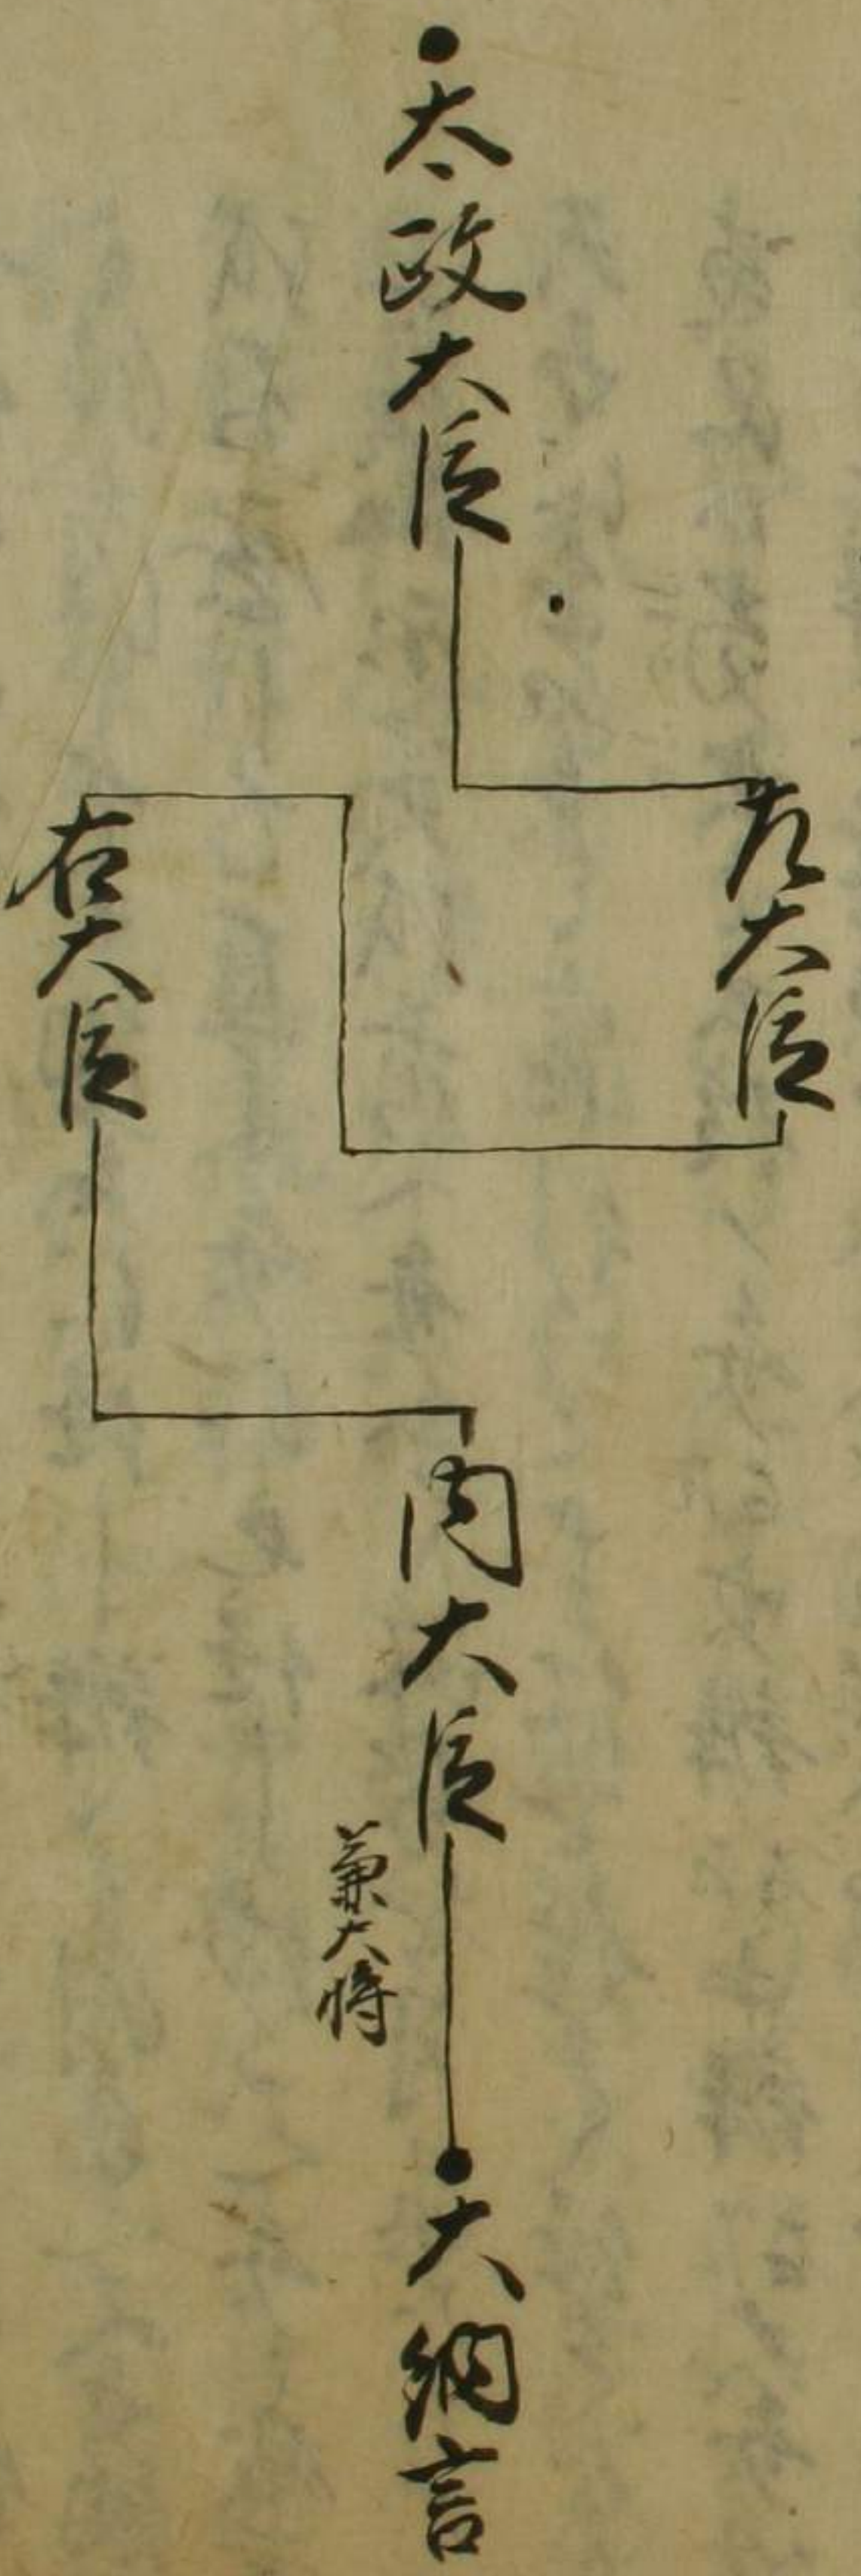 太政大臣
左大臣
右大臣
内大臣
兼大将
大納言